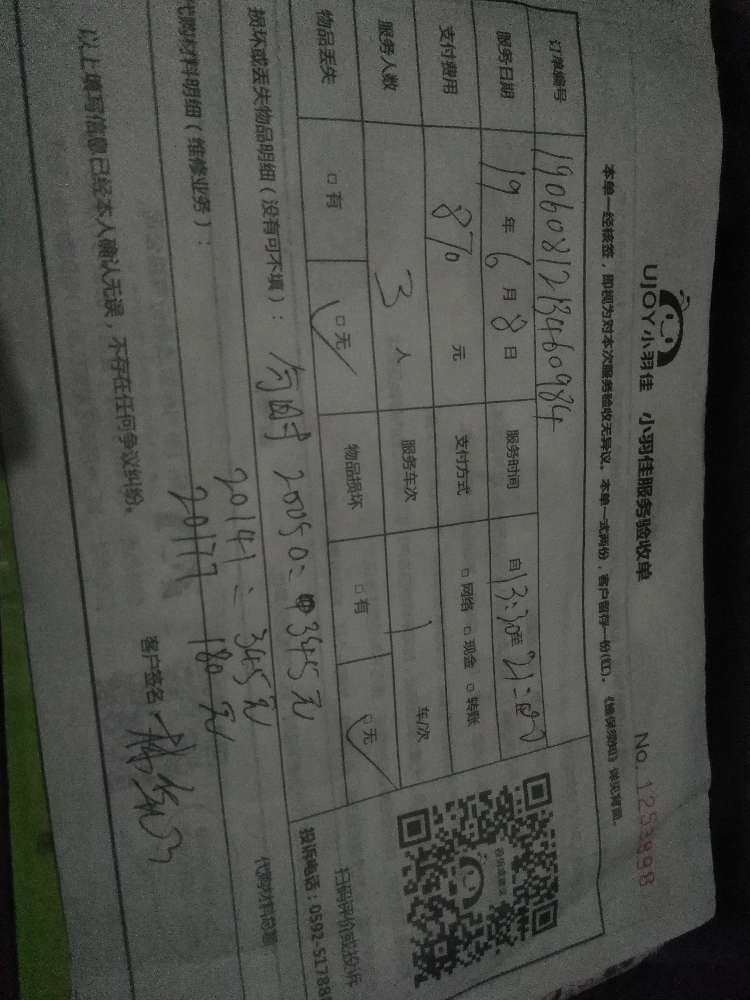 UJOY小羽佳 小羽佳服务验收单
No. 1253898
本单一经核签，即视为对本次服务验收无异议。本单一式两份，客户留存一份(红)。《维保须知》详见背面。
订单编号 1906081213460984
服务日期 19年6月8日 服务时间 自13:30至21:00
支付费用 870元 支付方式 □网络 □现金 □转账
服务人数 3人 服务车次 1 车/次
物品丢失 □有 □无 物品损坏 □有 □无
扫码评价或投诉
投诉电话：0592-51788
损坏或丢失物品明细（没有可不填）：
20050= 345元
20141=345元
代购材料明细（维修业务）：
20177 180元
代购材料总額
以上填写信息已经本人确认无误，不存在任何争议纠纷。
客户签名